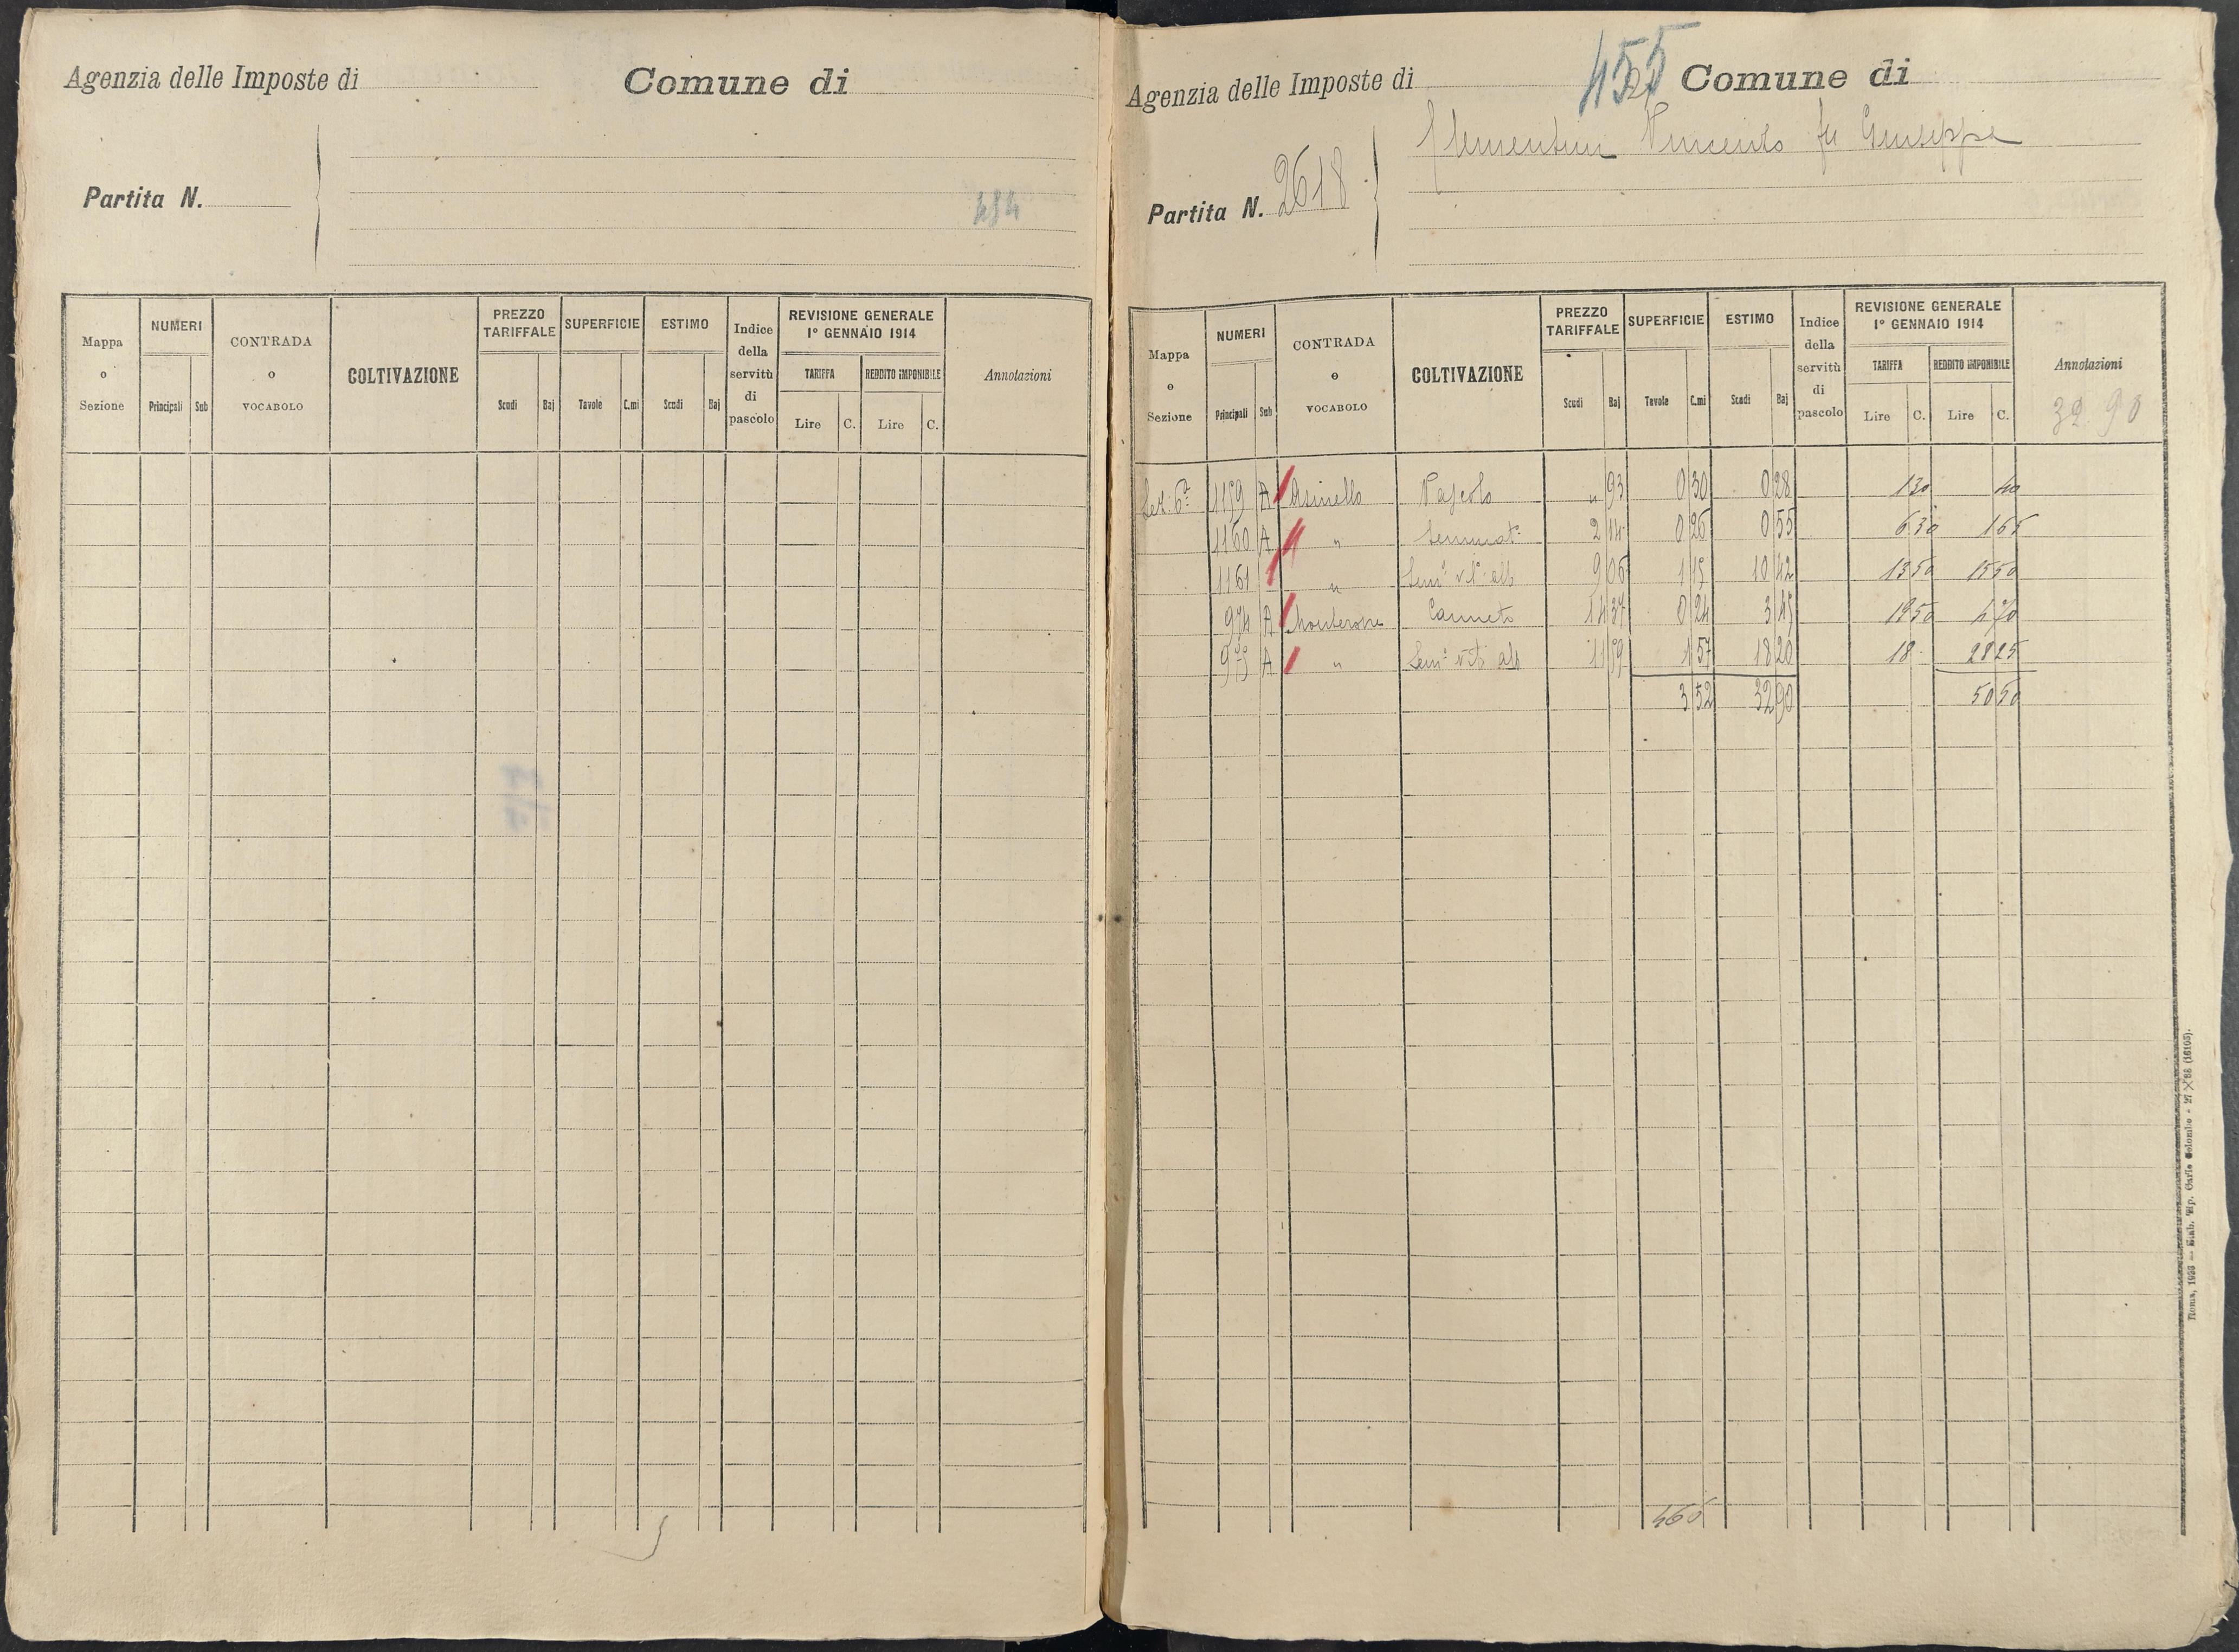 Agenzia delle Imposte di Comune di
Partita N.
484
Mappa o Sezione
NUMERI
Principali Sub
CONTRADA o VOCABOLO
COLTIVAZIONE
PREZZO TARIFFALE
Scudi Baj
SUPERFICIE
Tavole C.mi
ESTIMO
Scudi Baj
Indice della servitù di pascolo
REVISIONE GENERALE
1° GENNAIO 1914
TARIFFA REDDITO IMPONIBILE
Lire C. Lire C.
Annotazioni
455
Agenzia delle Imposte di Comune di
Clementini Vincenzo fu Giuseppe
Partita N. 2618
Mappa o Sezione
NUMERI
Principali Sub
CONTRADA o VOCABOLO
COLTIVAZIONE
PREZZO TARIFFALE
Scudi Baj
SUPERFICIE
Tavole C.mi
ESTIMO
Scudi Baj
Indice della servitù di pascolo
REVISIONE GENERALE
1° GENNAIO 1914
TARIFFA REDDITO IMPONIBILE
Lire C. Lire C.
Annotazioni
32.90
Sez. 6ª 1159 A Asinello Pascolo " 93 0 30 0 28 1 30 40
1160 A " Seminat. 2 14 0 26 0 55 6 30 1 65
1161 " Sem. vit. alb 9 06 1 15 10 42 13 50 15 50
974 A Monterone Canneto 14 37 0 24 3 45 19 50 4 70
975 A " Sem. vit. alb 11 59 1 57 18 20 18 - 28 25
3 52 32 90 50 50
466
Roma, 1923 — Stab. Tip. Carlo Colombo - 27 X 88 (16105).